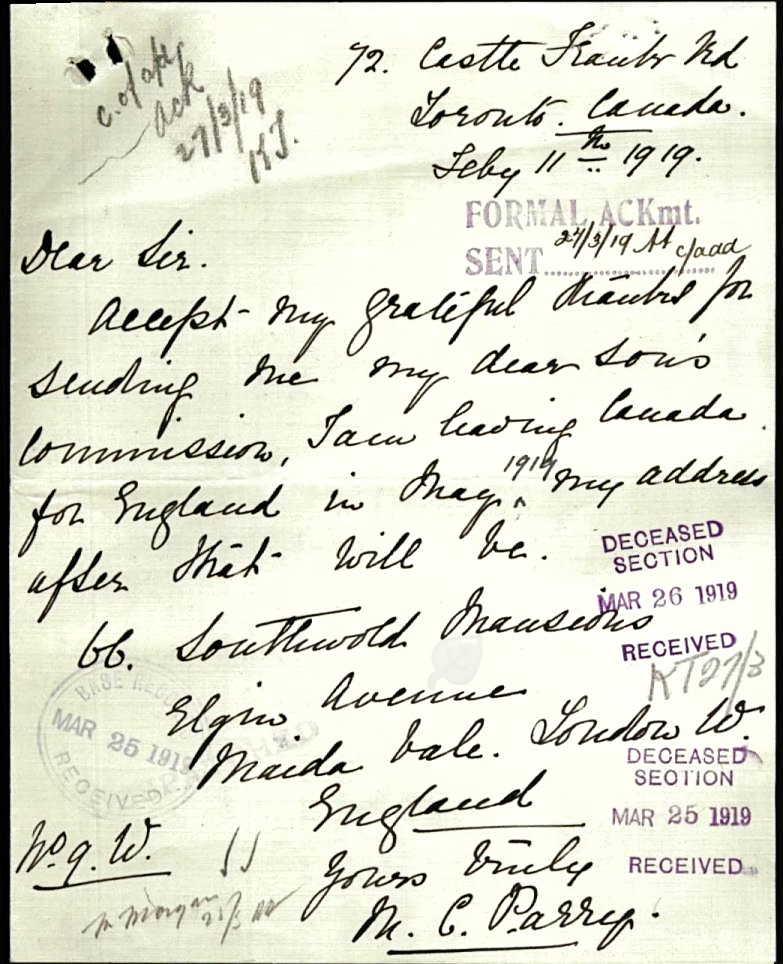 c. of add
Ack
27/3/19
KT.
72. Castle Frank Rd
Toronto. Canada.
Feby 11th 1919.
FORMAL ACKmt.
SENT 27/3/19 c/add
Dear Sir.
Accept my grateful thanks for
sending me my dear son's
Commission, I am leaving Canada
for England in May 1919 my address
after that will be.
66. Southwold Mansions
Elgin Avenue
Maida Vale. London W.
England
Yours truly
M. C. Parry.
No 9. W.
Mr Morgan
DECEASED
SECTION
MAR 26 1919
RECEIVED
KT 27/3
BASE RECORDS
MAR 25 1919
RECEIVED
DECEASED
SECTION
MAR 25 1919
RECEIVED